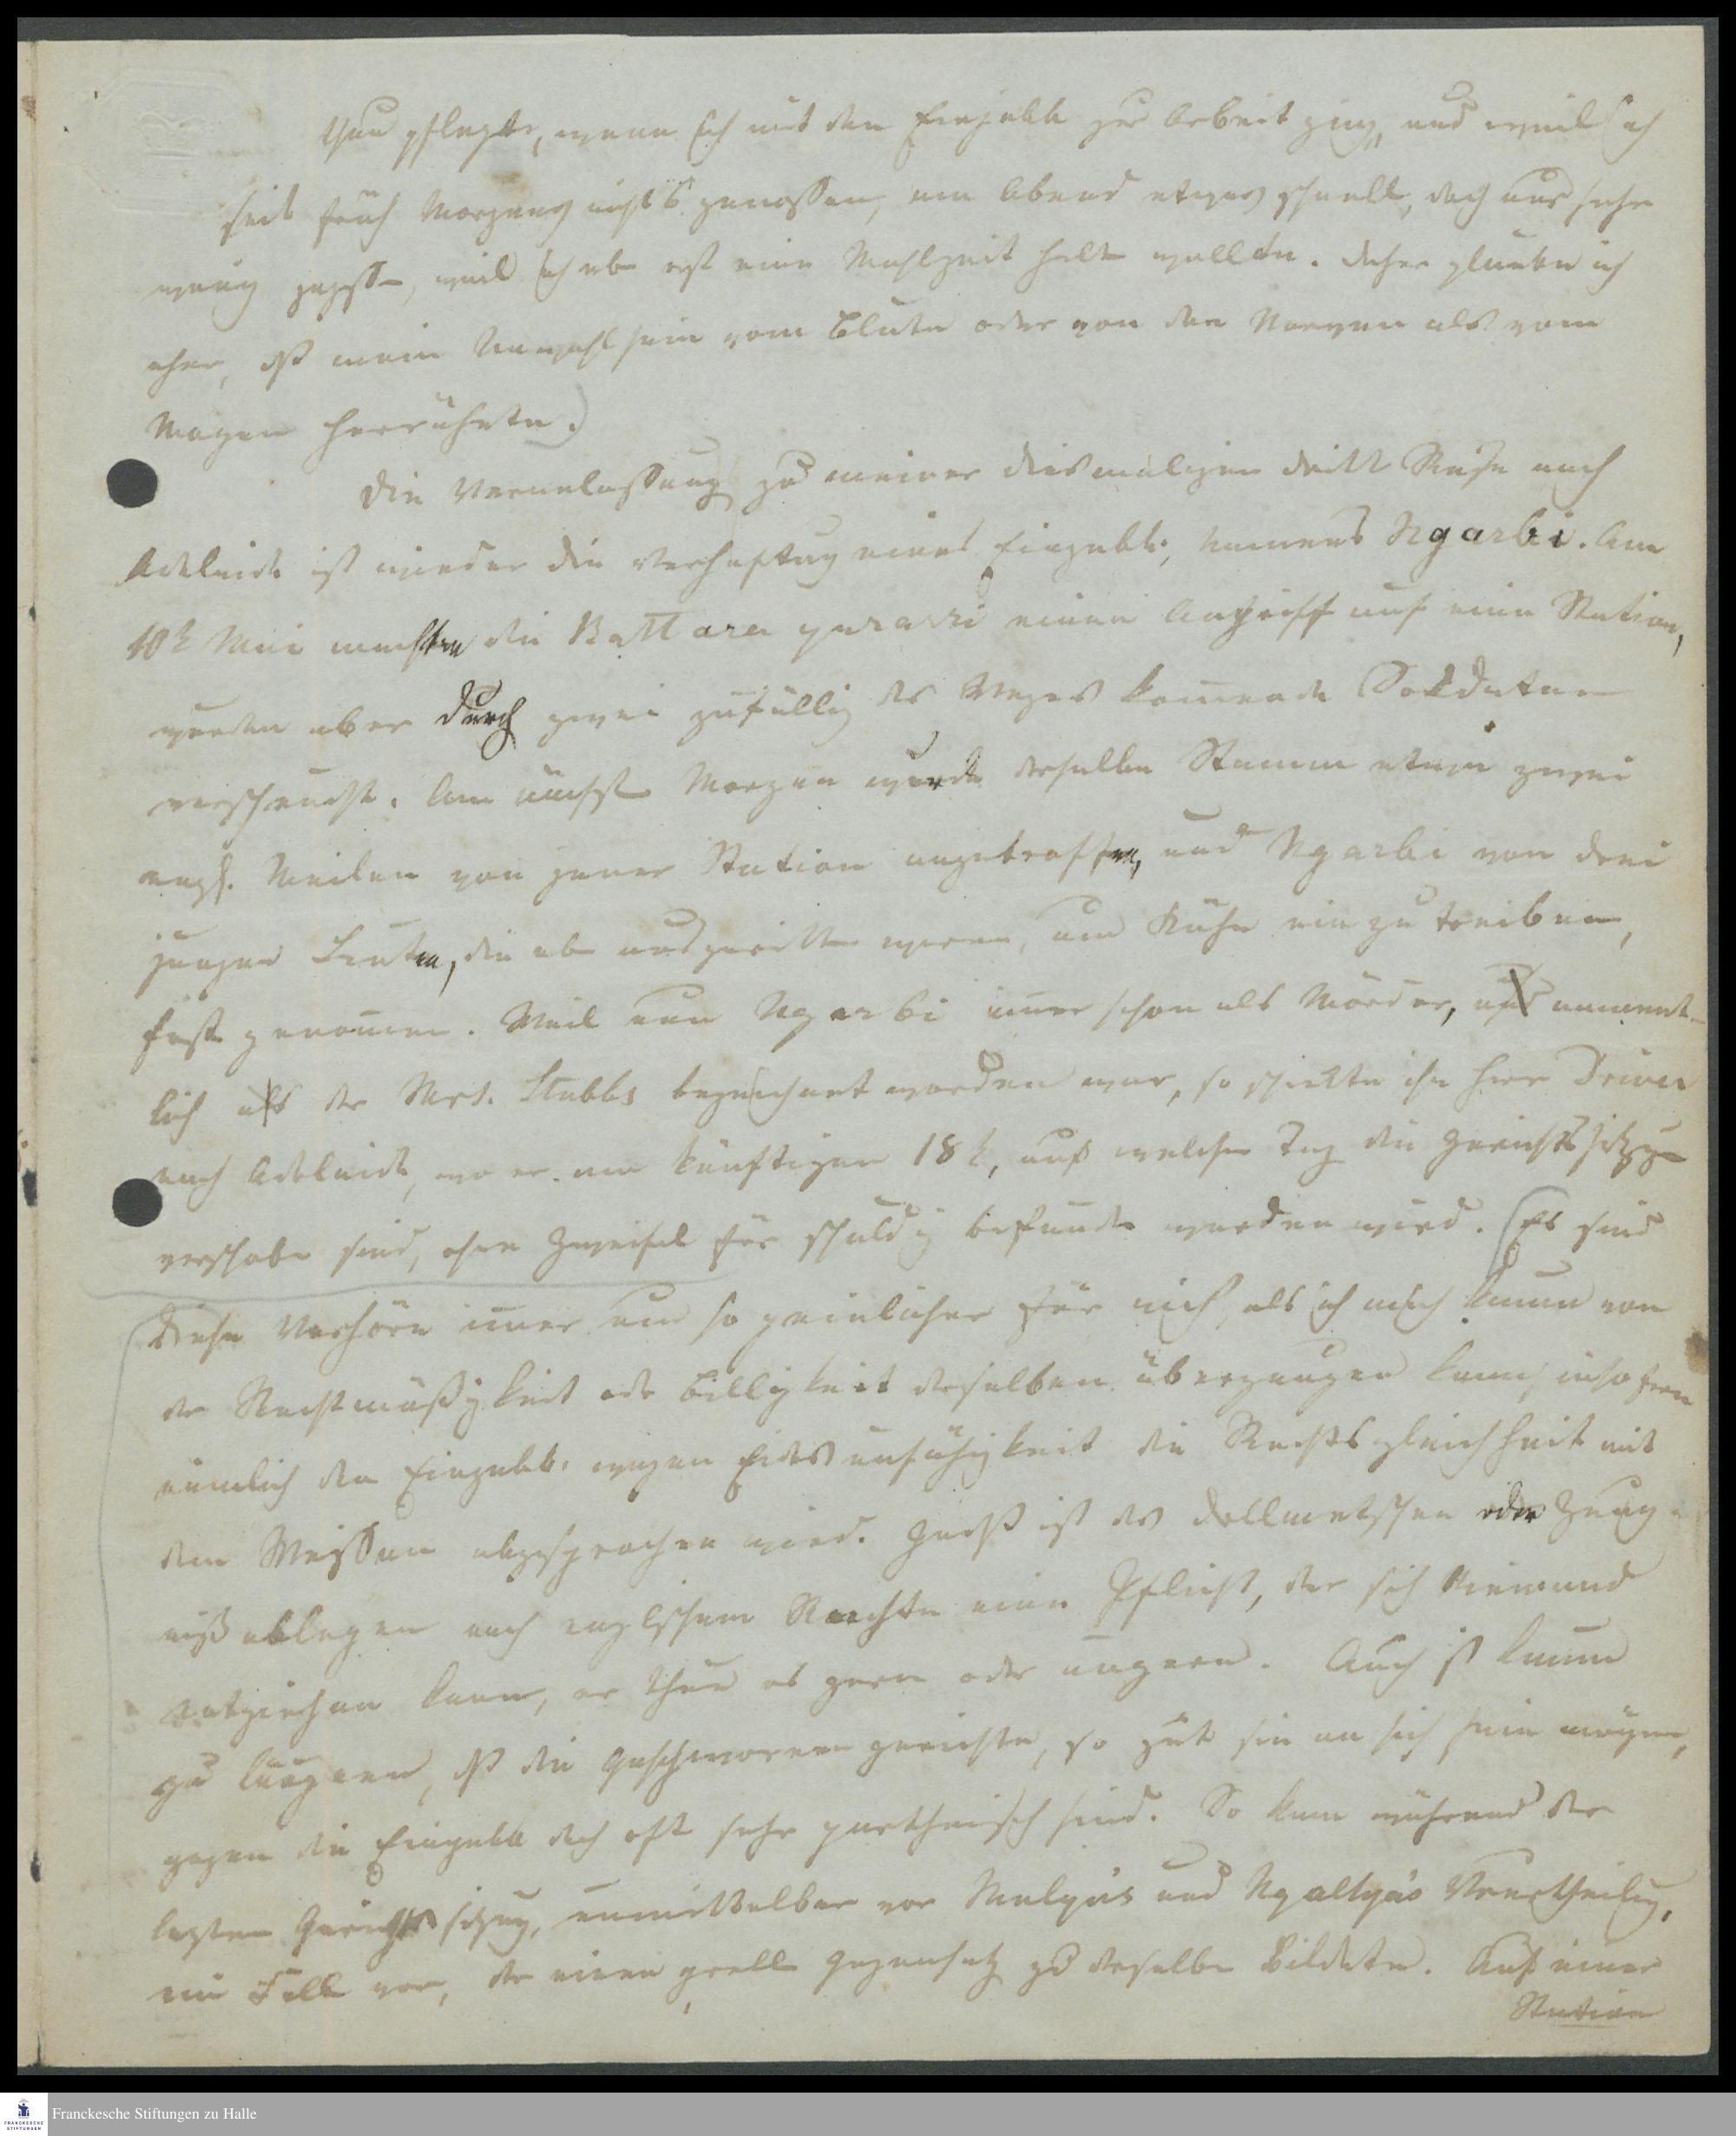 thun pflegte, wenn ich mit den Eingebb. zur Arbeit ging, und weil ich
seit früh Morgens nichts genossen, am Abend etwas schnell, doch nur sehr
wenig gegessen, weil ich eben erst eine Mahlzeit halten wollte. Daher glaube ich
eher, daß mein Unwohlsein vom Blute oder von den Nerven als vom
Magen herrührte.)
Die Veranlassung zu meiner diesmaligen dritten Reise nach
Adelaide ist wieder die Verhaftung eines Eingebb., Namens Ngarbi. Am
10t Mai machten die Battara yurarri einen Angriff auf eine Station,
wurden aber durch zwei zufällig des Weges kommende Soldaten
verscheucht. Am nächsten Morgen wurde derselbe Stamm etwa zwei
engl. Meilen von jener Station angetroffen, und Ngarbi von drei
jungen Leuten, die eben ausgeritten waren, um Kühe einzutreiben,
fest genommen. Weil nun Ngarbi immer schon als Mörder, nament-
lich als der Mrs. Stubbs bezeichnet worden war, so schickte ihn Herr Driver
nach Adelaide, wo er am künftigen 18t, auf welchen Tag die Gerichtssitzungen
verschoben sind, ohne Zweifel für schuldig befunden werden wird. (Es sind
diese Verhöre immer um so peinlicher für mich, als ich mich kaum von
der Rechtmäßigkeit oder Billigkeit derselben überzeugen kann, insofern
nämlich den Eingebb. wegen Eidesunfähigkeit die Rechtsgleichheit mit
den Weissen abgesprochen wird. ist das Dollmetschen oder Zeug-
niß ablegen nach englischem Rechte eine Pflicht, der sich Niemand
entziehen kann, er thue es gern oder ungern. Auch ist kaum
zu läugnen, daß die Geschwornengerichte, so gut sie an sich sein mögen,
gegen die Eingebb. doch oft sehr partheiisch sind. So kam während der
letzten Gerichtssitzung, unmittelbar vor Malgas und Ngaltyas Verurtheilung,
ein Fall vor, der einen grellen Gegensatz zu derselben bildete. Auf einer
Station
Franckesche Stiftungen zu Halle
FRANCKESCHE
STIFTUNGEN